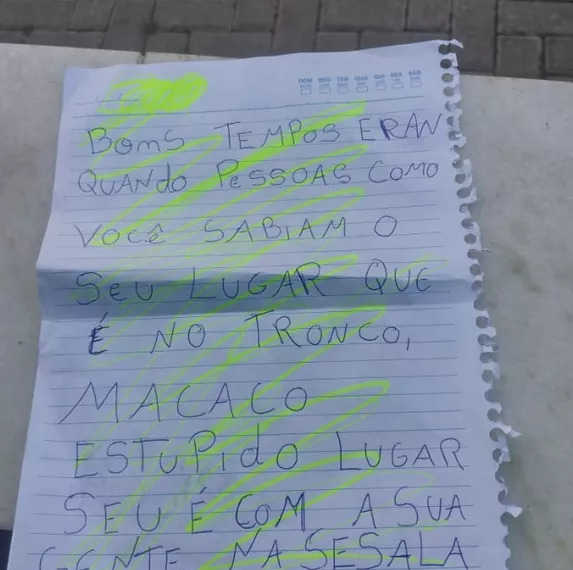 DOM SEG TER QUA QUI SEX SÁB
BOMS TEMPOS ERAN
QUANdO PeSSOAS COMO
VOCÊ SABIAM O
SEU LUGAR QUE
É NO TRONCO,
MACACO
ESTUPIdO LUGAR
SEU É COM A SUA
GENTE NA SESALA